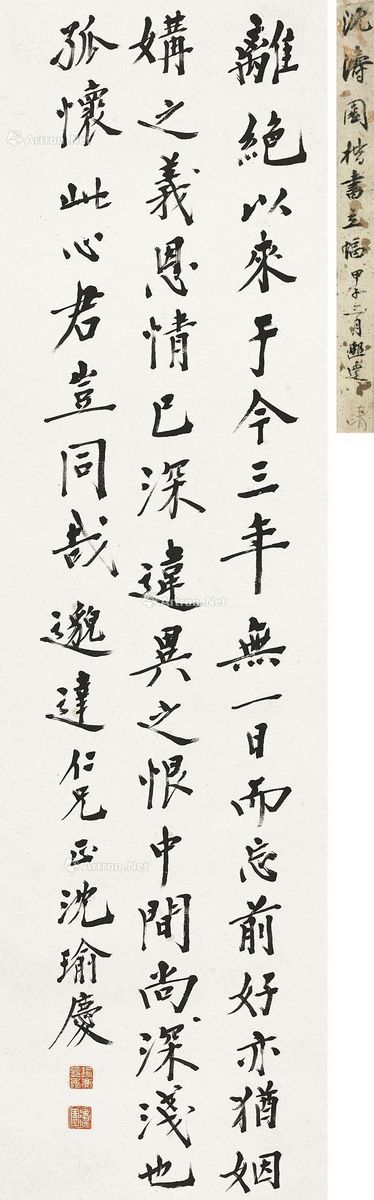 離絕以來于今三年無一日而忘前好亦猶姻
媾之義恩情已深違異之恨中間尚深淺也
孤懷此心君豈同哉邈達仁兄正沈瑜慶
沈濤園楷書立幅甲午三月
Artron.Net
Artron.Net
Artron.Net
Artron.Net